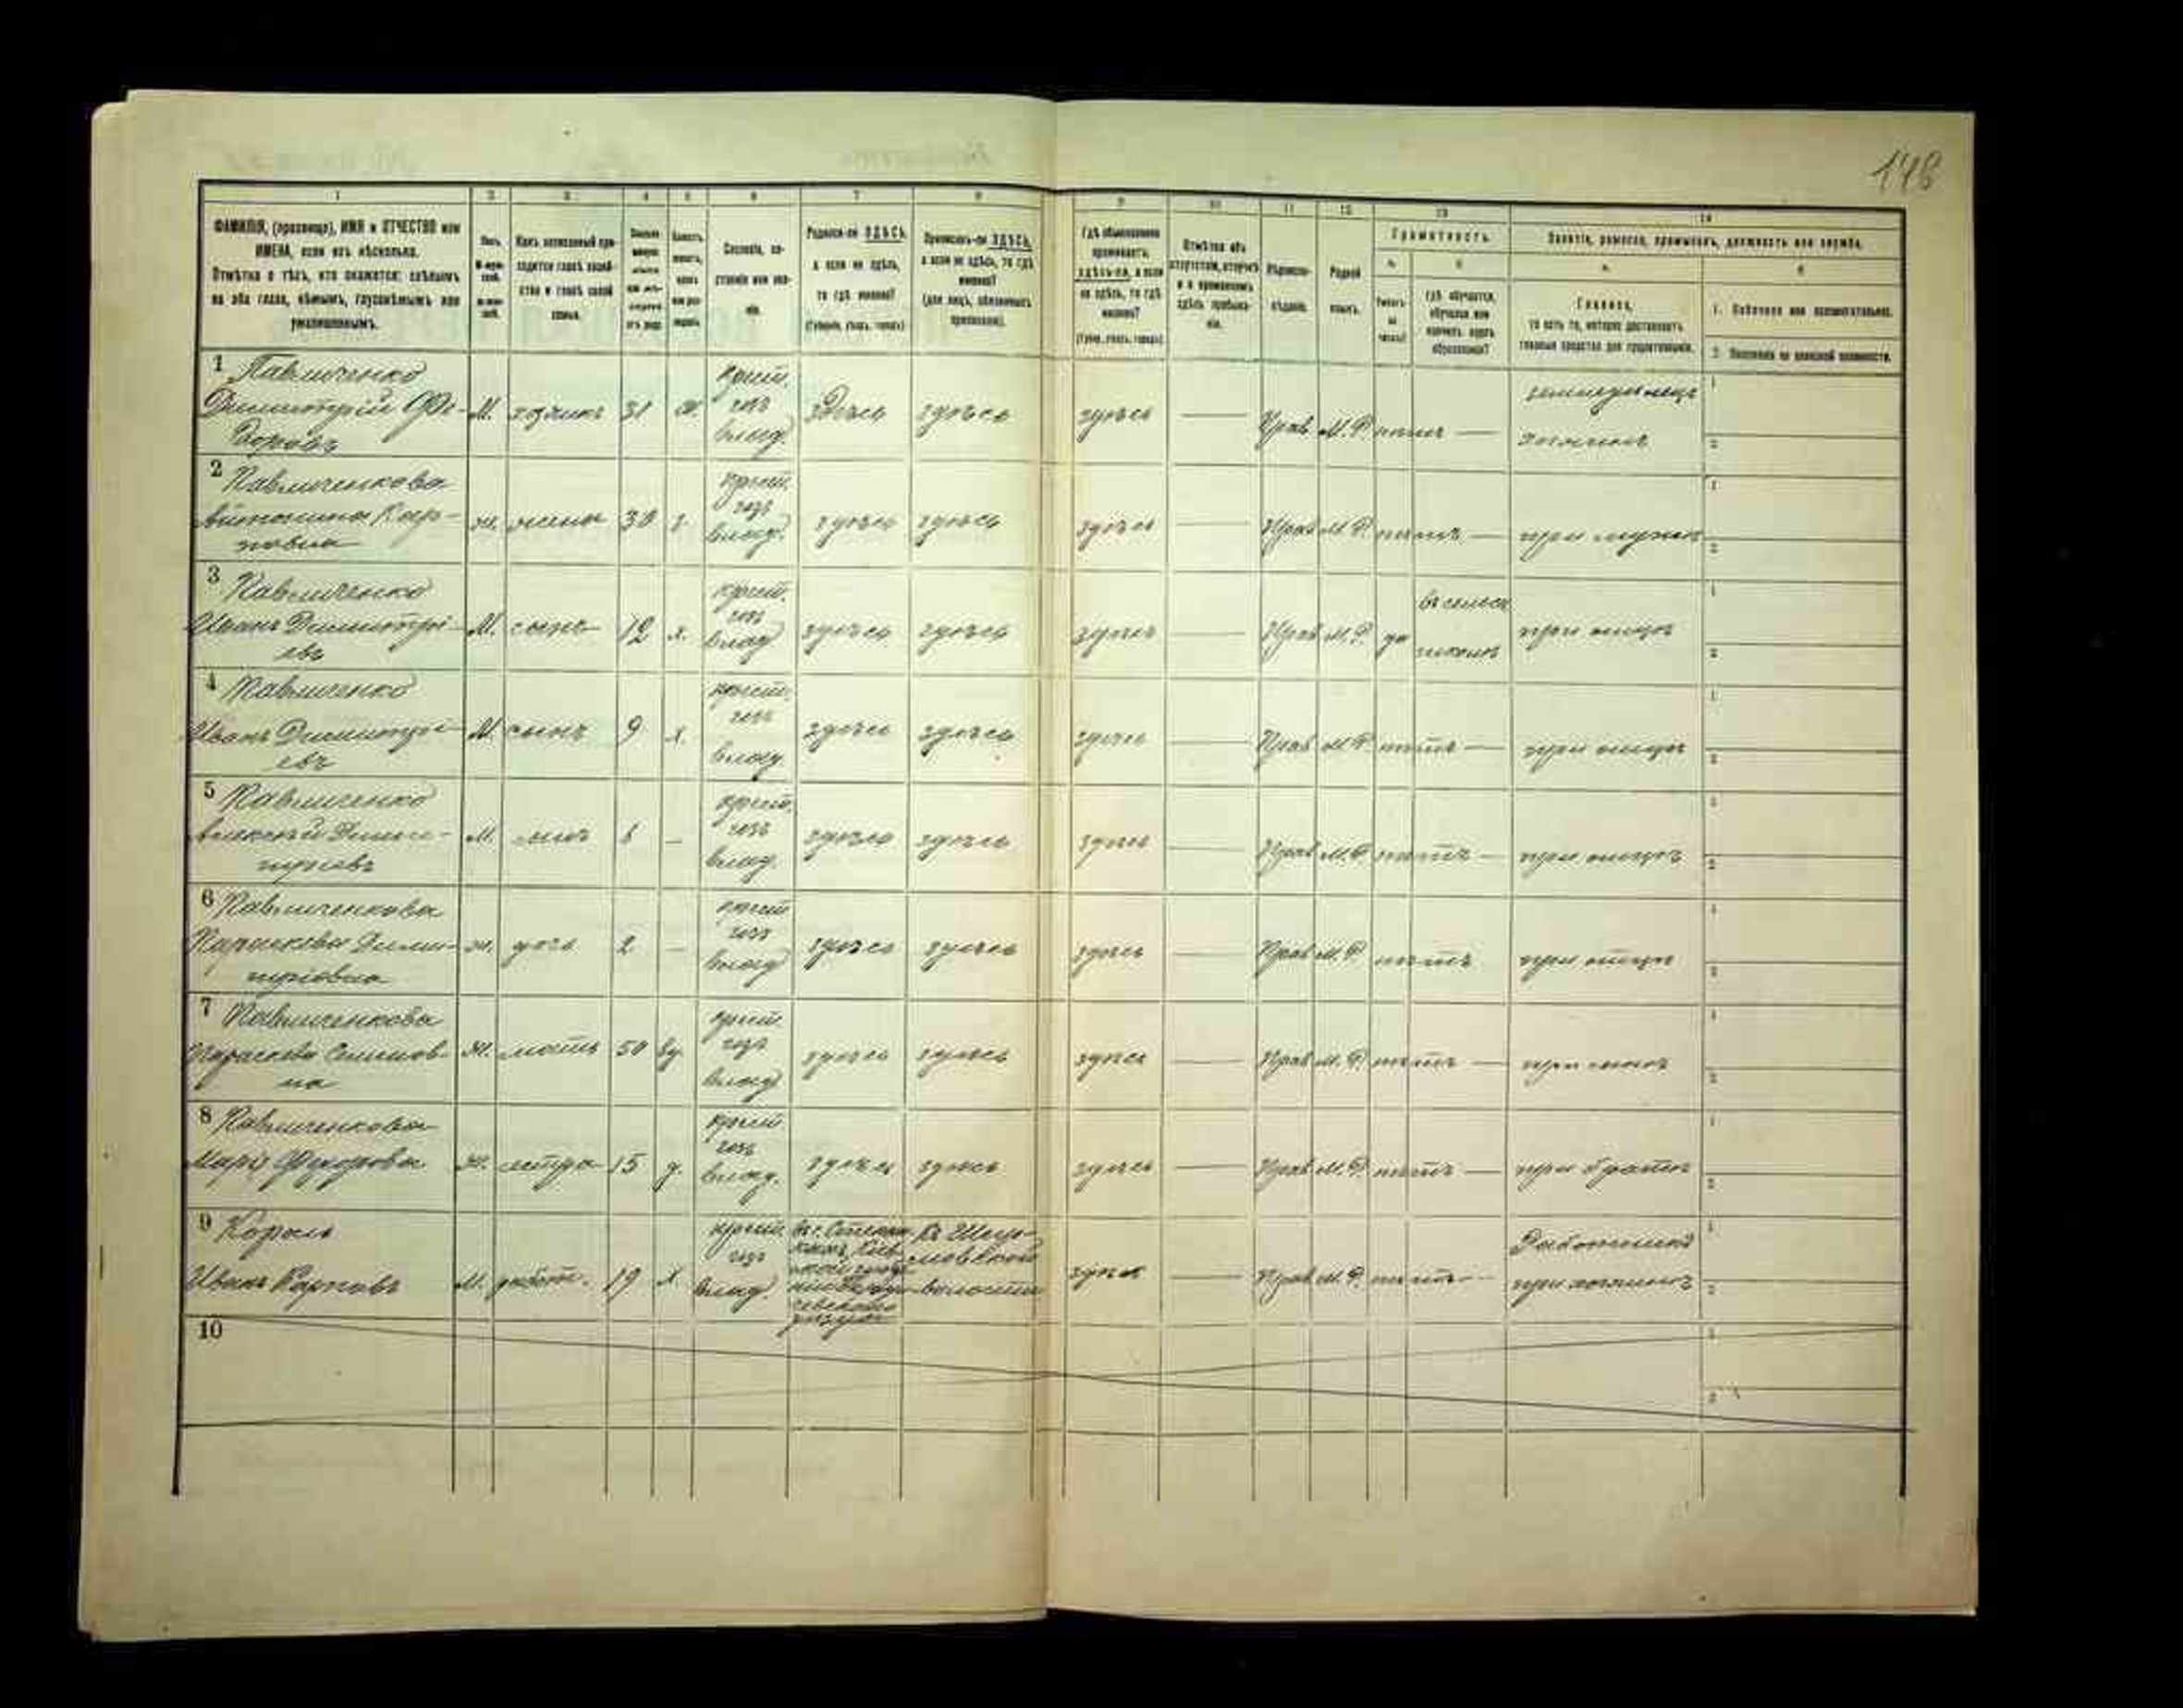 148
1 2 3 4 5 6 7 8 9 10 11 12 13 14
ФАМИЛІЯ, (прозвище), ИМЯ и ОТЧЕСТВО или
ИМЕНА, если ихъ нѣсколько.
Отмѣтка о тѣхъ, кто окажется: слѣпымъ
на оба глаза, нѣмымъ, глухонѣмымъ или
умалишеннымъ.
Полъ.
Какъ записанный при-
ходится главѣ хозяй-
ства и главѣ своей
семьи.
Сословіе, со-
стояніе или зва-
ніе.
Родился-ли ЗДѢСЬ,
а если не здѣсь,
то гдѣ именно?
(Губернія, уѣздъ, городъ)
Приписанъ-ли ЗДѢСЬ,
а если не здѣсь, то гдѣ
именно?
(для лицъ, обязанныхъ
припискою).
Гдѣ обыкновенно
проживаетъ,
здѣсь-ли, а если
не здѣсь, то гдѣ
именно?
(Губер., уѣздъ, городъ)
Отмѣтка объ
отсутствіи, отлучкѣ
и о временномъ
здѣсь пребыва-
ніи.
Вѣроиспо-
вѣданіе.
Родной
языкъ.
Грамотность.
а.
б.
Умѣетъ
ли
читать?
гдѣ обучается,
обучался или
кончилъ курсъ
образованія?
Занятіе, ремесло, промыселъ, должность или служба.
а.
б.
Главное,
то есть то, которое доставляетъ
главныя средства для существованія.
1. Побочное или вспомогательное.
2. Положеніе по воинской повинности.
1 Павличенко
Димитрій Фе-
доровъ
М. хозяинъ 31 ж.
крест.
соб
влад.
здѣсь здѣсь здѣсь — Прав М.Р. нѣтъ —
земледѣлецъ
хозяинъ
1
2
2 Павличенкова
Антонина Кар-
повна
ж. жена 30 з.
крест.
соб
влад.
здѣсь здѣсь здѣсь — Прав М.Р. нѣтъ — при мужѣ
1
2
3 Павличенко
Иванъ Димитрі-
евъ
М. сынъ 12 х.
крест.
соб
влад
здѣсь здѣсь здѣсь — Прав М.Р. да
въ сельск
школѣ
при отцѣ
1
2
4 Павличенко
Иванъ Димитрі-
евъ
М. сынъ 9 х.
крест.
соб
влад.
здѣсь здѣсь здѣсь — Прав М.Р. нѣтъ — при отцѣ
1
2
5 Павличенко
Алексѣй Дими-
тріевъ
М. сынъ —
крест.
соб
влад.
здѣсь здѣсь здѣсь — Прав М.Р. нѣтъ — при отцѣ
1
2
6 Павличенкова
Параскева Дими-
тріовна
ж. дочь 2 —
крест
соб
влад
здѣсь здѣсь здѣсь — Прав М.Р. нѣтъ при отцѣ
1
2
7 Павличенкова
Параскева Семенов-
на
Ж. мать 50 вд.
крест
соб
влад
здѣсь здѣсь здѣсь — Прав М.Р. нѣтъ — при сынѣ
1
2
8 Павличенкова
Марія Федорова
Ж. сестра 15 д.
крест
соб
влад.
здѣсь здѣсь здѣсь — Прав М.Р. нѣтъ — при братѣ
1
2
9 Король
Иванъ Карповъ
М. работ. 19 х
крест.
соб
влад.
уѣзда
волости
здѣсь — Прав М.Р. нѣтъ —
Работникъ
при хозяинѣ
1
2
10
1
2